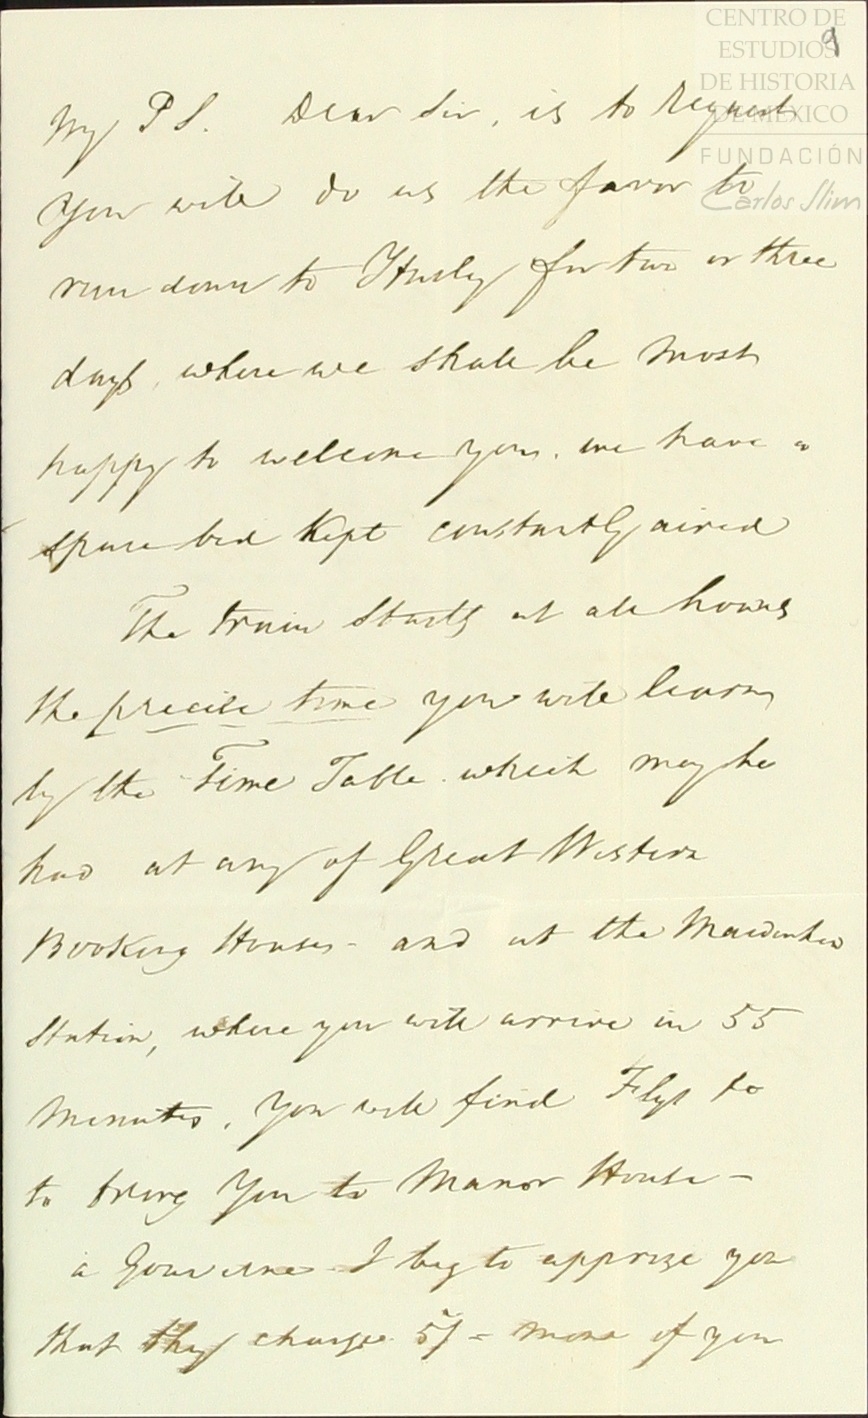 CENTRO DE
ESTUDIOS
DE HISTORIA
DE MÉXICO
FUNDACIÓN
Carlos Slim
9
My P S. Dear Sir, is to request
you will do us the favor to
run down to Hurley for two or three
days, where we shall be most
happy to welcome you. we have a
spare bed Kept constantly aired
The train starts at all hours
the precise time you will learn
by the Time Table which may be
had at any of Great Western
Booking Houses - and at the
Station, where you will arrive in 55
Minutes, You will find Flys to
to bring You to Manor House -
a I beg to apprize you
that they charge 5/- more if you